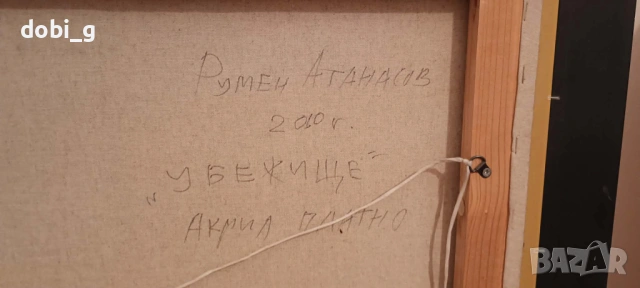 dobi_g
Румен Атанасов
2010 г.
"Убежище"
Акрил платно
BAZAR